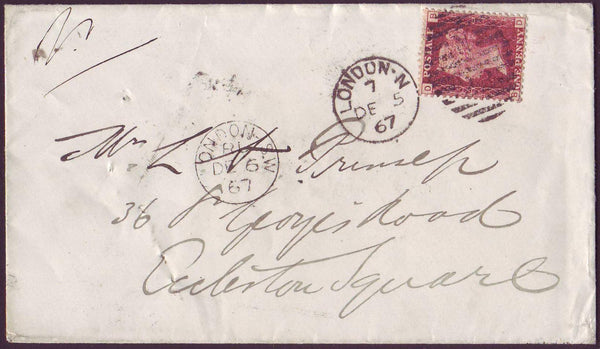 D D
POSTAGE
ONE PENNY
LONDON-N
7
DE 5
67
LONDON-S.W
DE 6
67
Mrs L Prinsep
36 St Georges Road
Eccleston Square